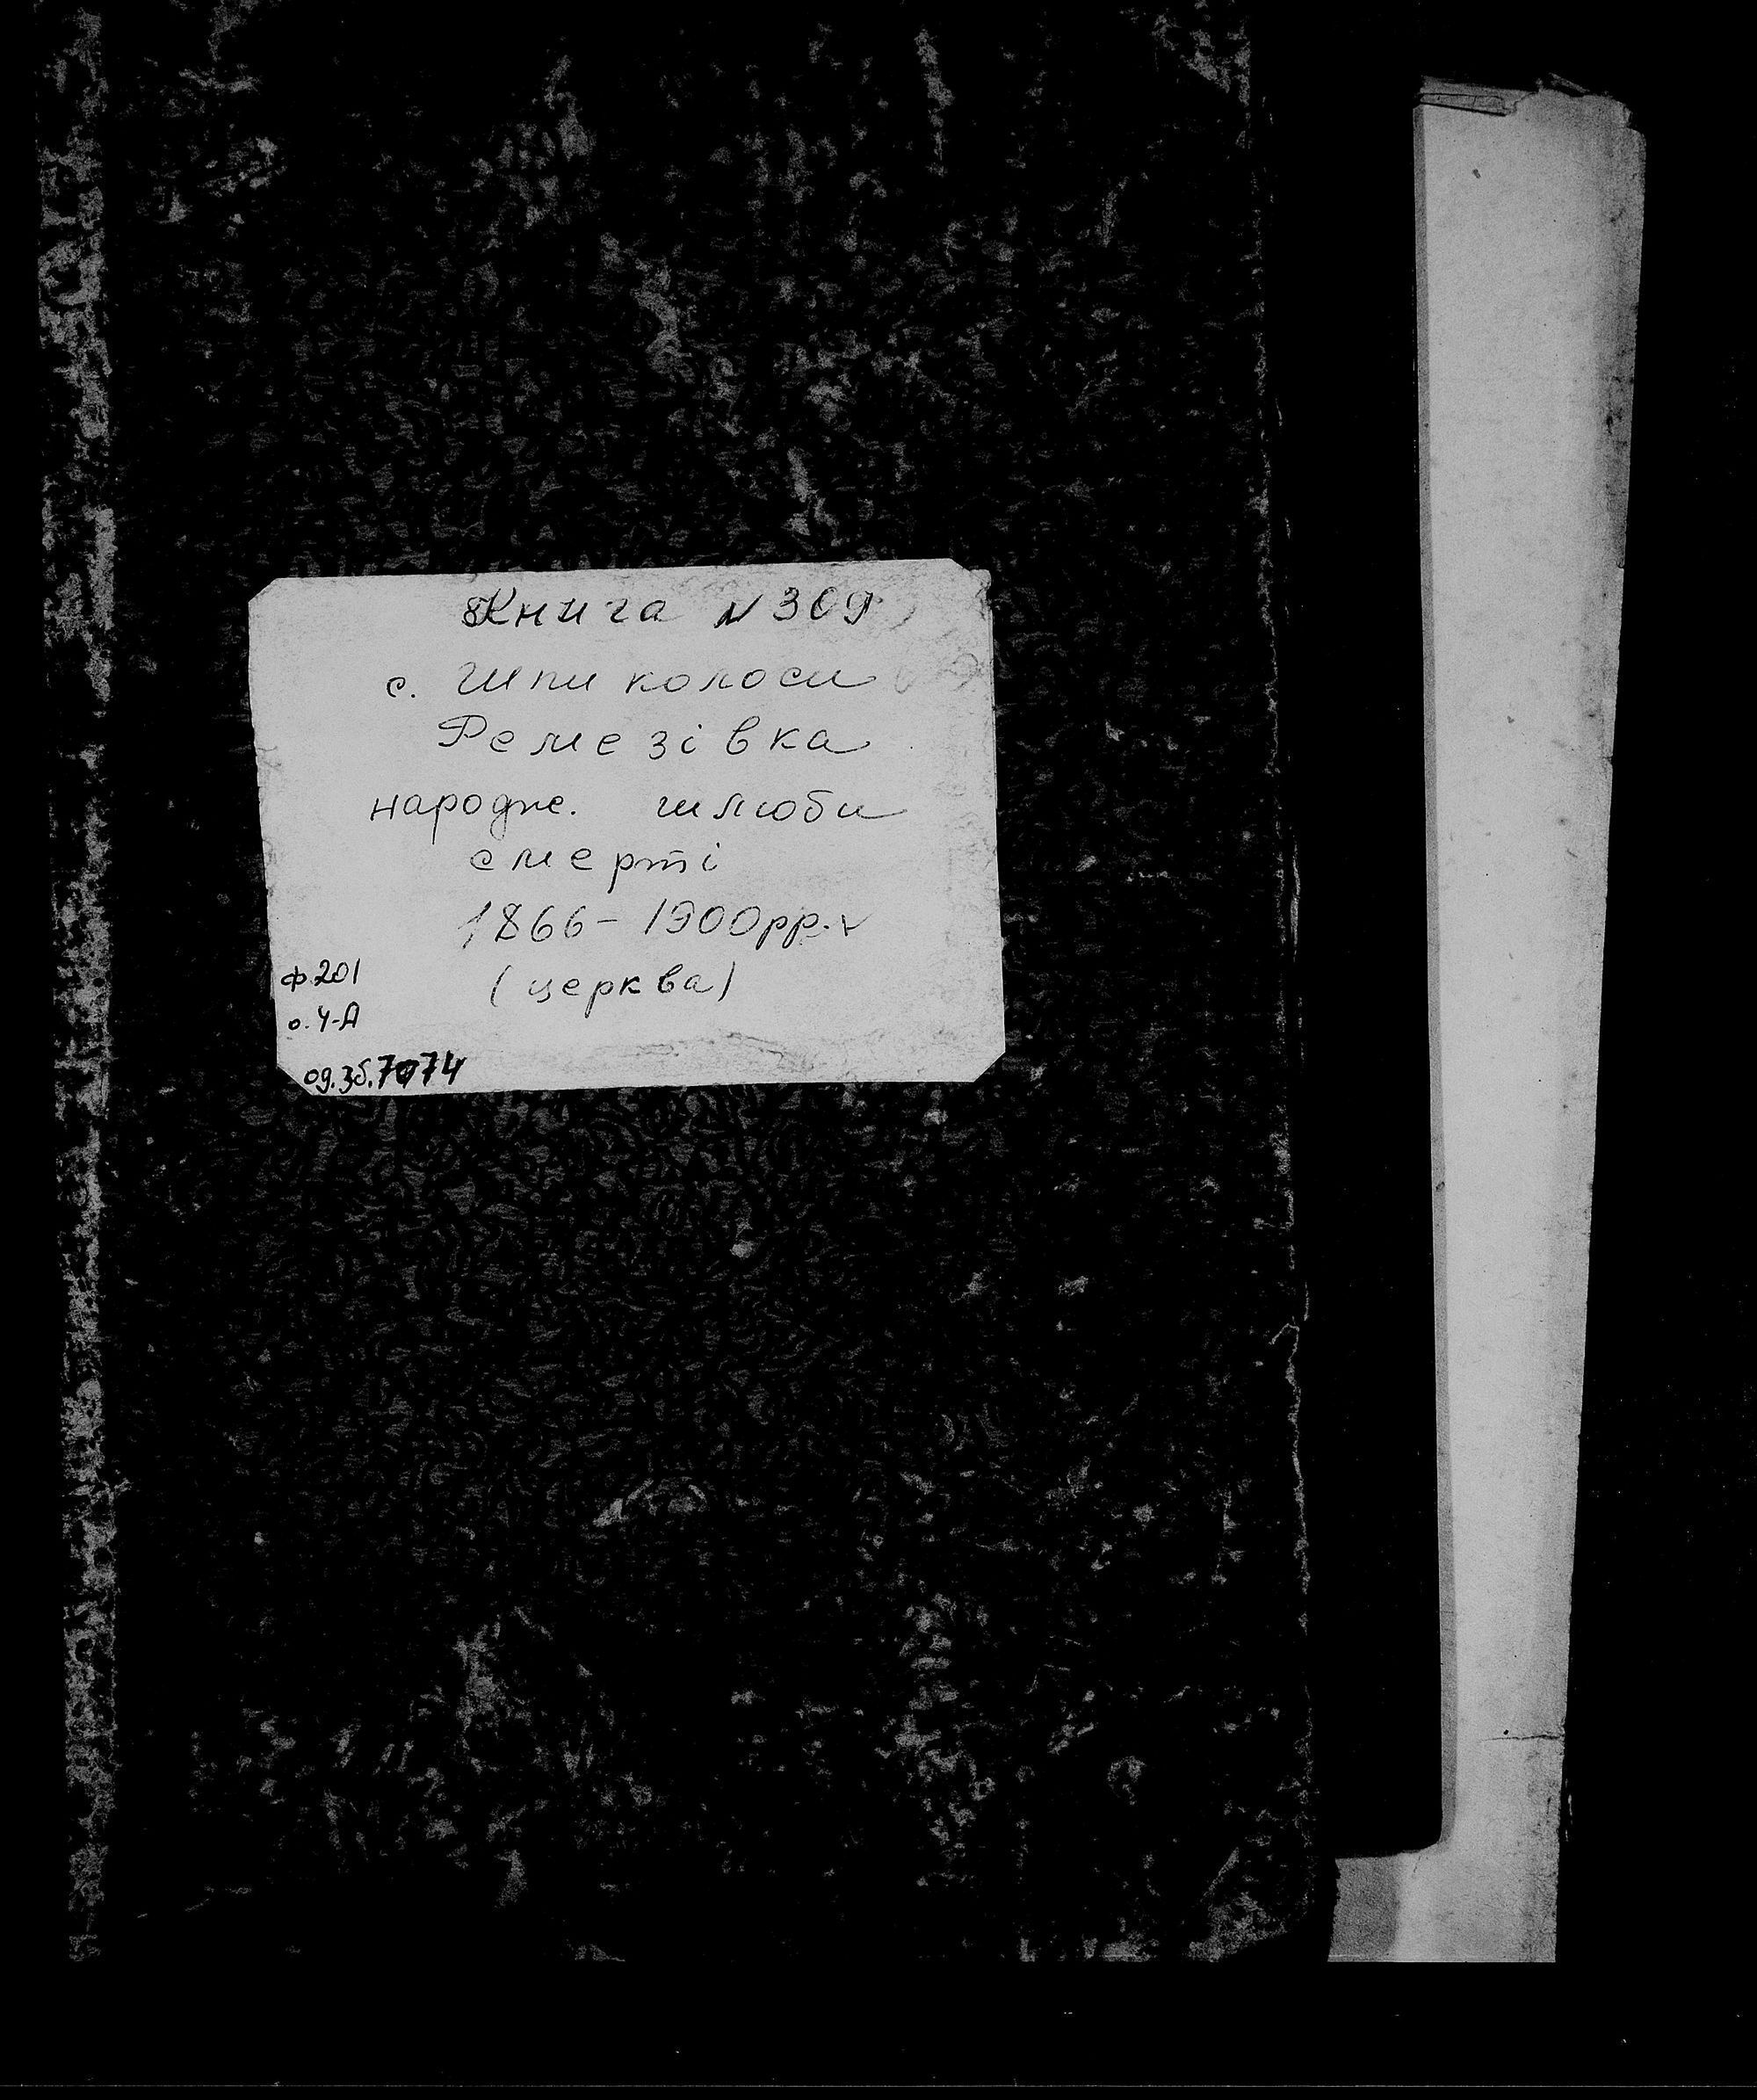 Книга № 309
с. Шпиколоси
Ремезівка
народж. шлюби
смерті
1866-1900рр.
(церква)
ф. 201
о. 4-А
од.зб. 7074